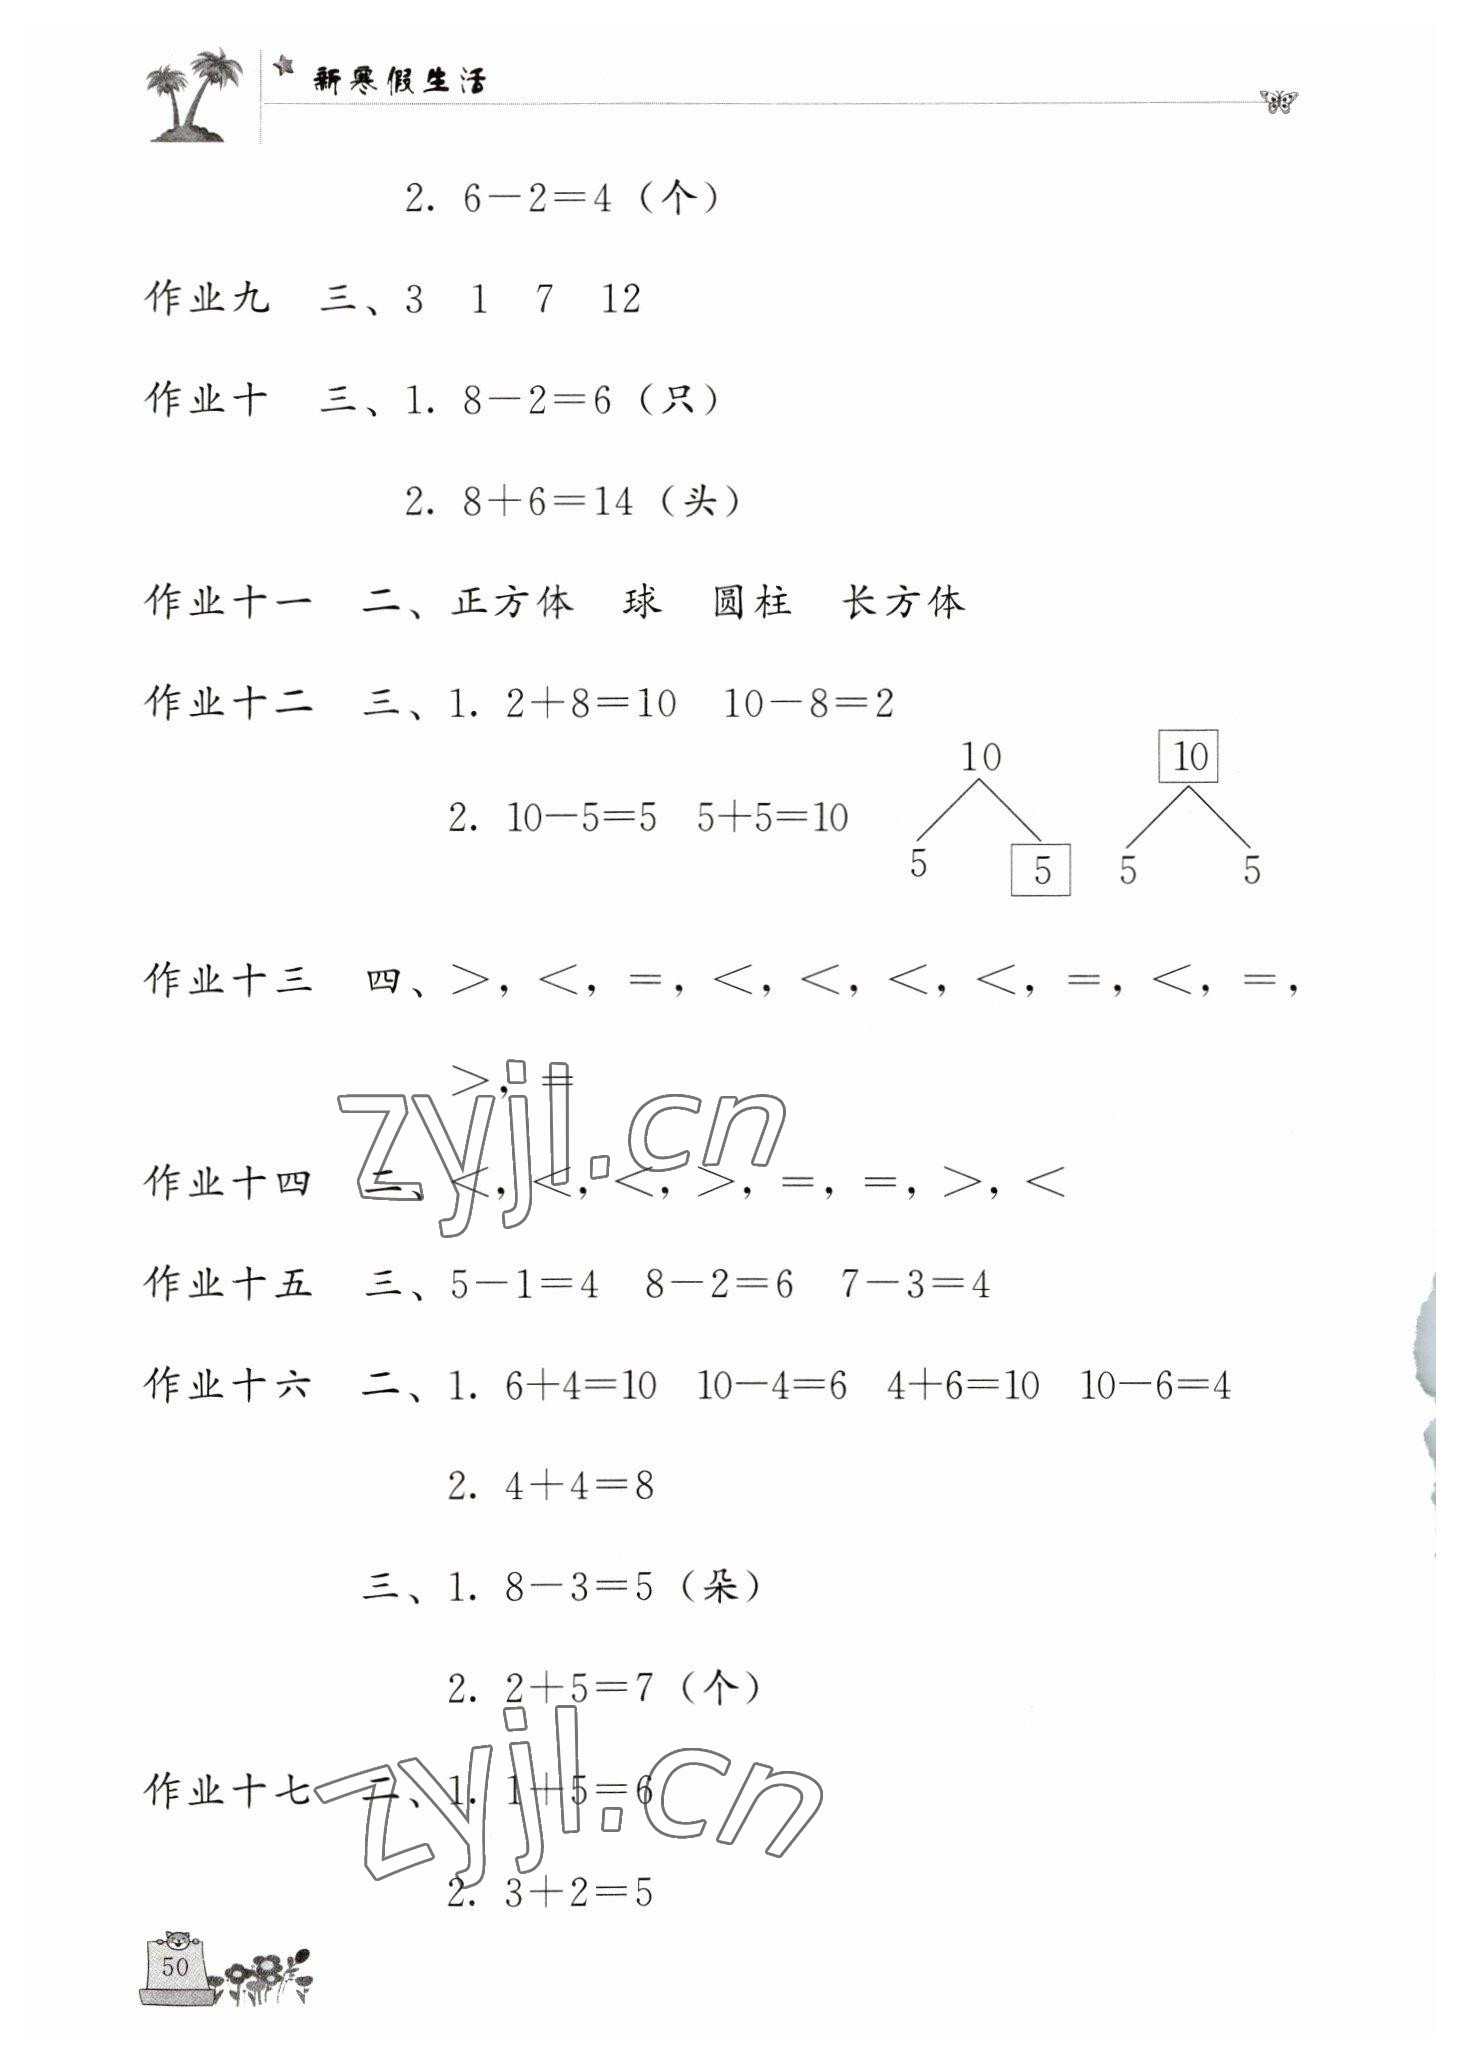 新寒假生活
2. 6－2＝4（个）
作业九 三、3 1 7 12
作业十 三、1. 8－2＝6（只）
2. 8＋6＝14（头）
作业十一 二、正方体 球 圆柱 长方体
作业十二 三、1. 2＋8＝10 10－8＝2
2. 10－5＝5 5＋5＝10
10 10
5 5 5 5
作业十三 四、＞，＜，＝，＜，＜，＜，＜，＝，＜，＝，
＞，＝
zyjl.cn
作业十四 二、＜，＜，＜，＞，＝，＝，＞，＜
作业十五 三、5－1＝4 8－2＝6 7－3＝4
作业十六 二、1. 6＋4＝10 10－4＝6 4＋6＝10 10－6＝4
2. 4＋4＝8
三、1. 8－3＝5（朵）
2. 2＋5＝7（个）
作业十七 二、1. 1＋5＝6
zyjl.cn
2. 3＋2＝5
50